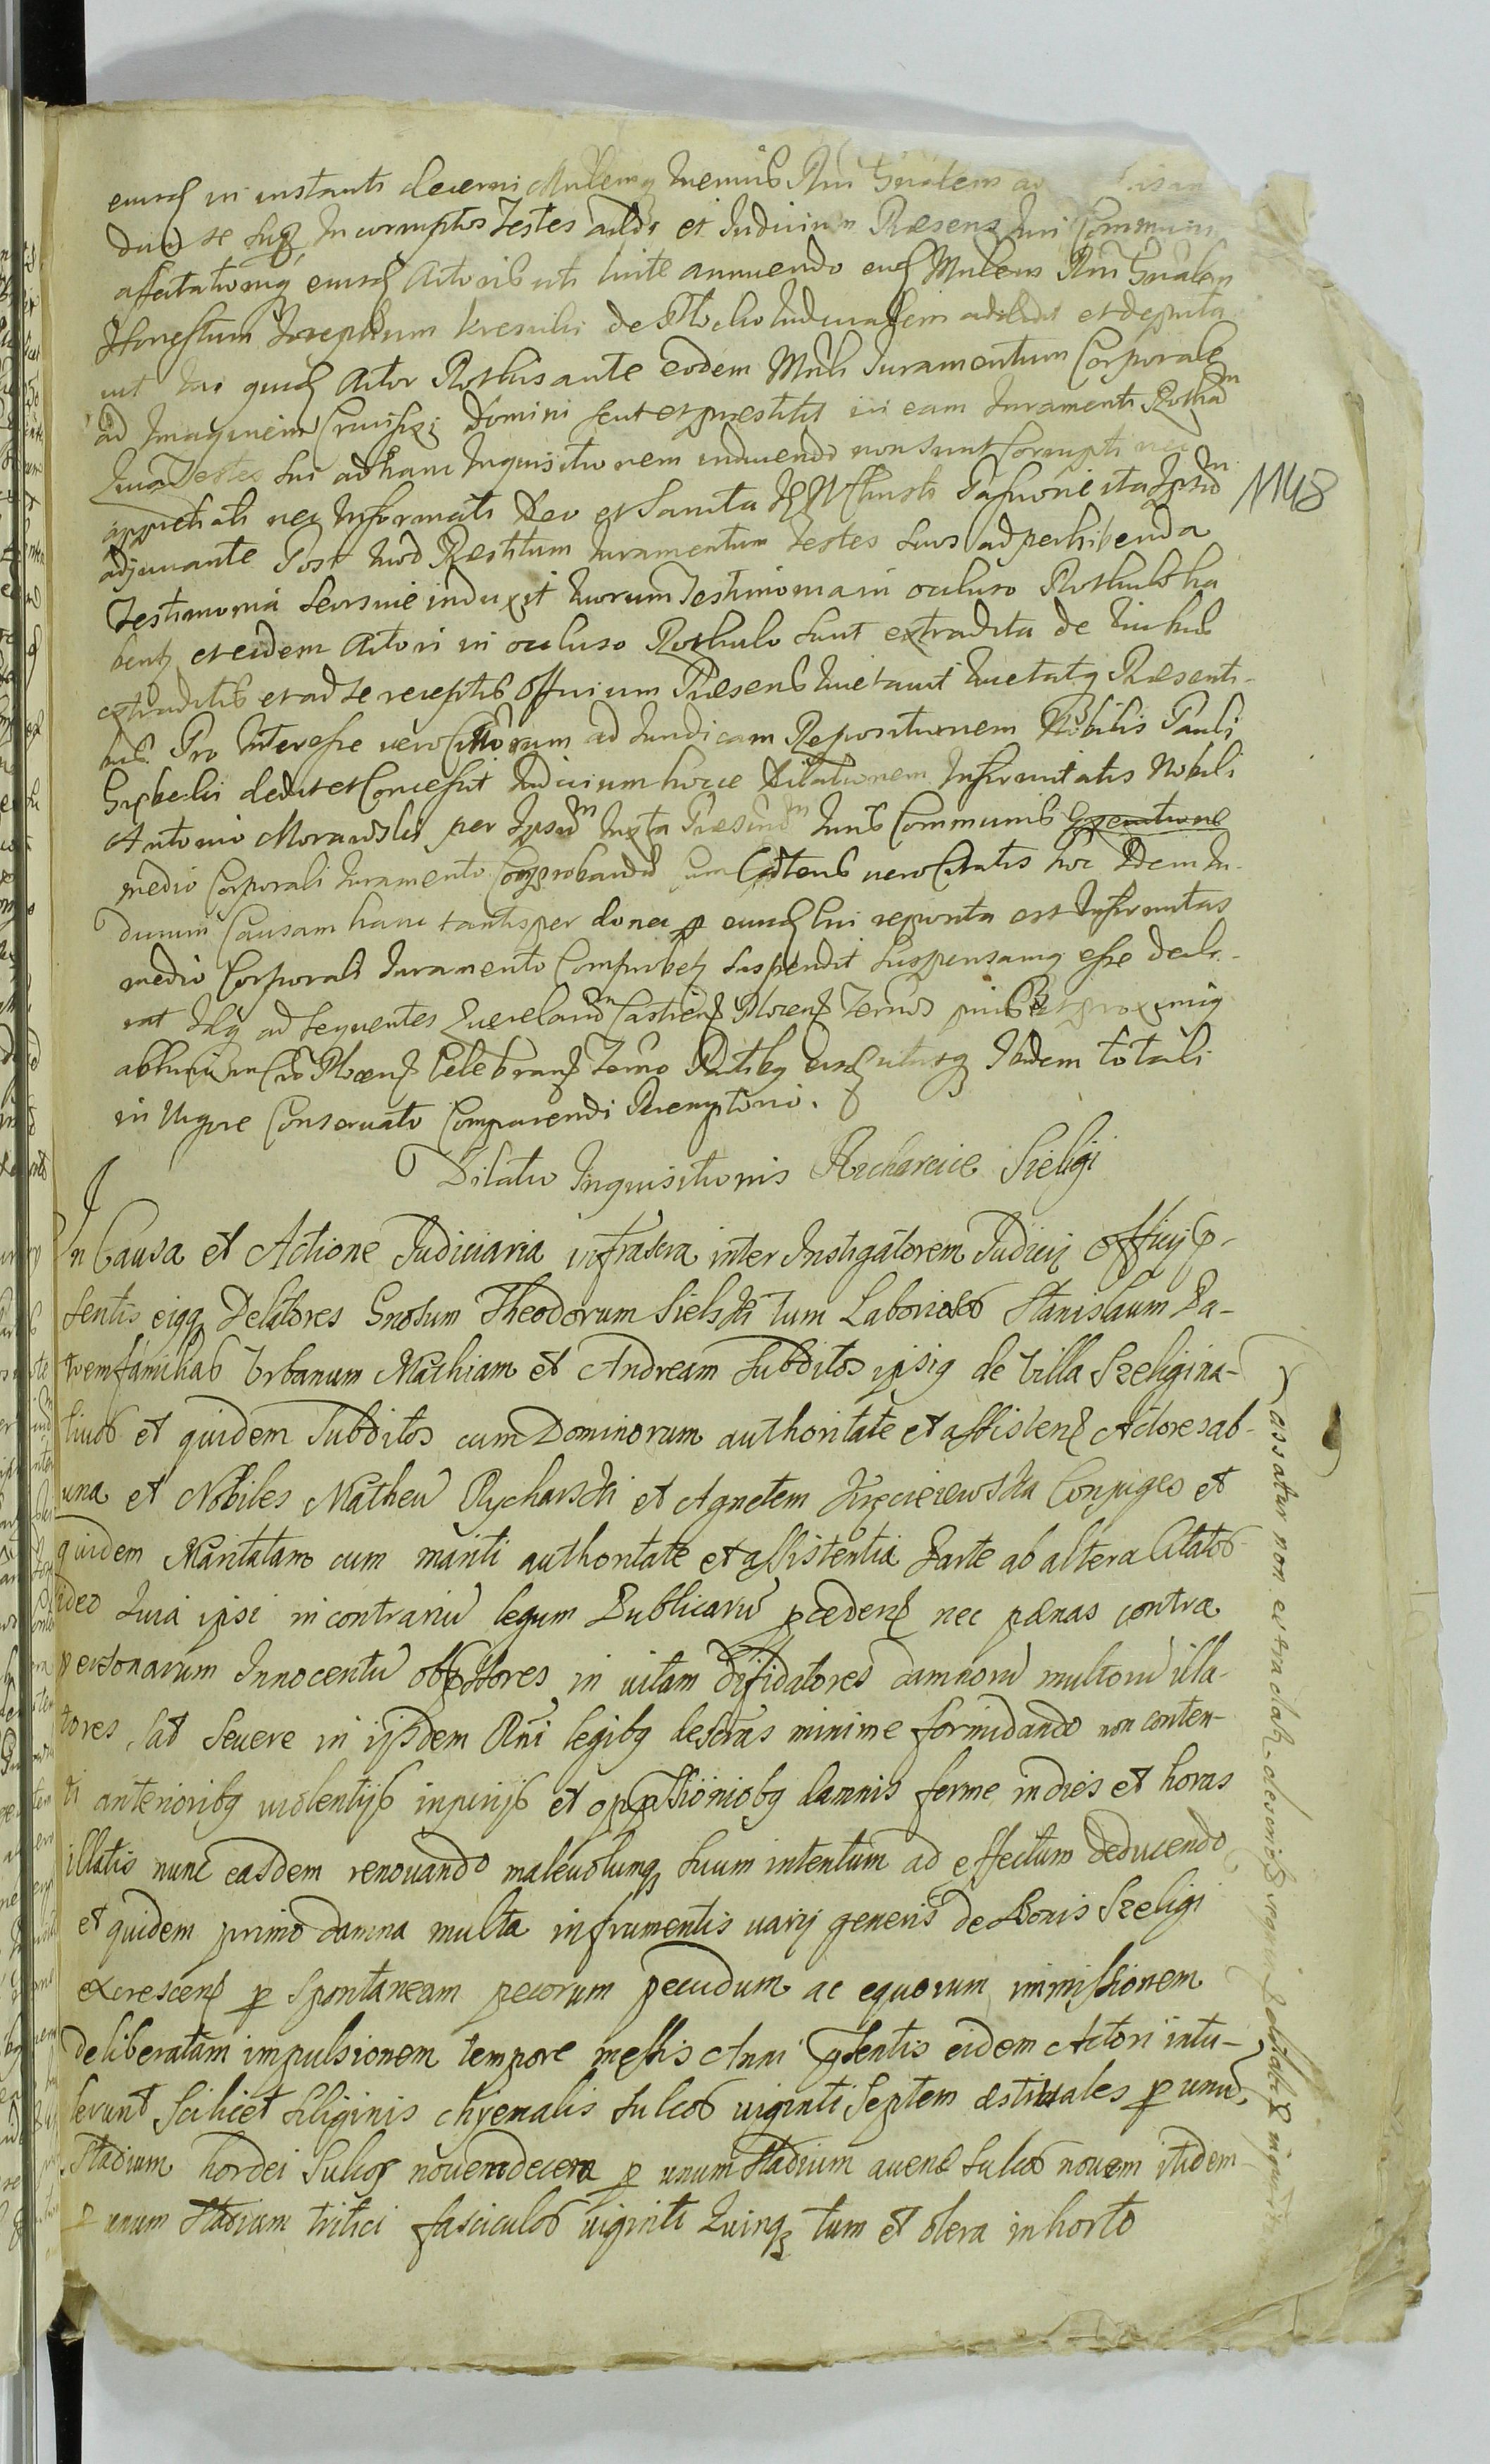 eiusd in instanti decerni Mnlemq
dud se Incorruptos Testes addi et Iudicium Præsens Iuri Communi
affectationiq eiusd Actoris uti annuendo Mnlem Rni Gnalem
Honestum Josephum de Plocko Iudicialem addidit et deputa
uit Qui quid Actor Rothis ante eodem Mnli Iuramentum Corporale
ad Imaginem Crucifixi Domini fecit et præstitit in eam Iuramenti Rotham
Quia Testes sui ad hanc Inquisitionem inducendi non sunt Corrupti nec
appretiati nec Informati Deo et Sancta Christi Passione ita Ipsum
adjuuante Post quod Præstitum Iuramentum Testes suos ad perhibenda
Testimonia seorsiue induxit quorum Testimonia in ocluso Rothulo ha
bent et eidem Actori in ocluso Rothulo sunt extradita de quibus
extraditis et ad se receptis Officium Præsens quietauit quietatq Præsenti-
bus. Pro Interesse uero Cittorum ad Iuridicam Repositionem Nobilis Pauli
dedit et Concessit Iudicium hocce Dilationem Infirmitatis Nobili
Antonio Morawski per Ipsum Iuxta Præscriptum Iuris Communis Exemtione
medio Corporali Iuramento Comprobandam Cætens uero Citatis hoc Idem Iu-
dicium Causam hanc tantisper donec p eund sui reposita est Infirmitas
medio Corporali Iuramento Comprobet suspendit suspensamq esse decla-
rat Idq ad sequentes Querelarum Castren Plocen Terminos
abhinc in Cro Plocen Celebrand Termo Partibq eisd utrisq Ibidem totali
in Vigore Conseruato Comparendi Peremptorio.
Dilatio Inquisitionis Rycharcice Szeligi
In Causa et Actione Judiciaria infrascra inter Instigatorem Judicij Officij p-
sentis eiqq Delatores Gnosum Theodorum Sielski tum Laboriosos Stanislaum Pa-
tremfamilias Urbanum Mathiam et Andream Subditos ipsiq de Villa Szeligi na-
tiuos et quidem Subditos cum Dominorum authoritate et assisten Actores ab-
una et Nobiles Matheu Rycharski et Agnetem Kręciejewska Conjuges et
quidem Maritatam cum mariti authoritate et assistentia Parte ab altera Citatos
ideo Quia ipsi in contrariu legum Publicaru pceden nec pænas contra
personarum Innocentu oppssores in uitam difidatores damnoru multoru illa-
tores sat seuere in ijsdem Rni legibq descras minime formidando non conten-
ti anterioribq uiolentijs injurijs et oppssionibq damnis ferme in dies et horas
illatis nunc easdem renouando maleuolumq suum intentum ad effectum deducendo
et quidem primo damna multa in frumentis uarij generis de Bonis Szeligi
excrescen p spontaneam pecorum pecudum ac equorum immissionem
deliberatam impulsionem tempore messis Anni psentis eidem Actori intu-
lerunt scilicet siliginis chyemalis sulcos uiginti septem æstiuales p unu
Stadium hordei sulcos nouemdecem p unum stadium auenæ sulcos nouem itidem
p unum Stadium tritici fasciculos uiginti Quinq tum et olera in horto
1148
Cassatur non extradat